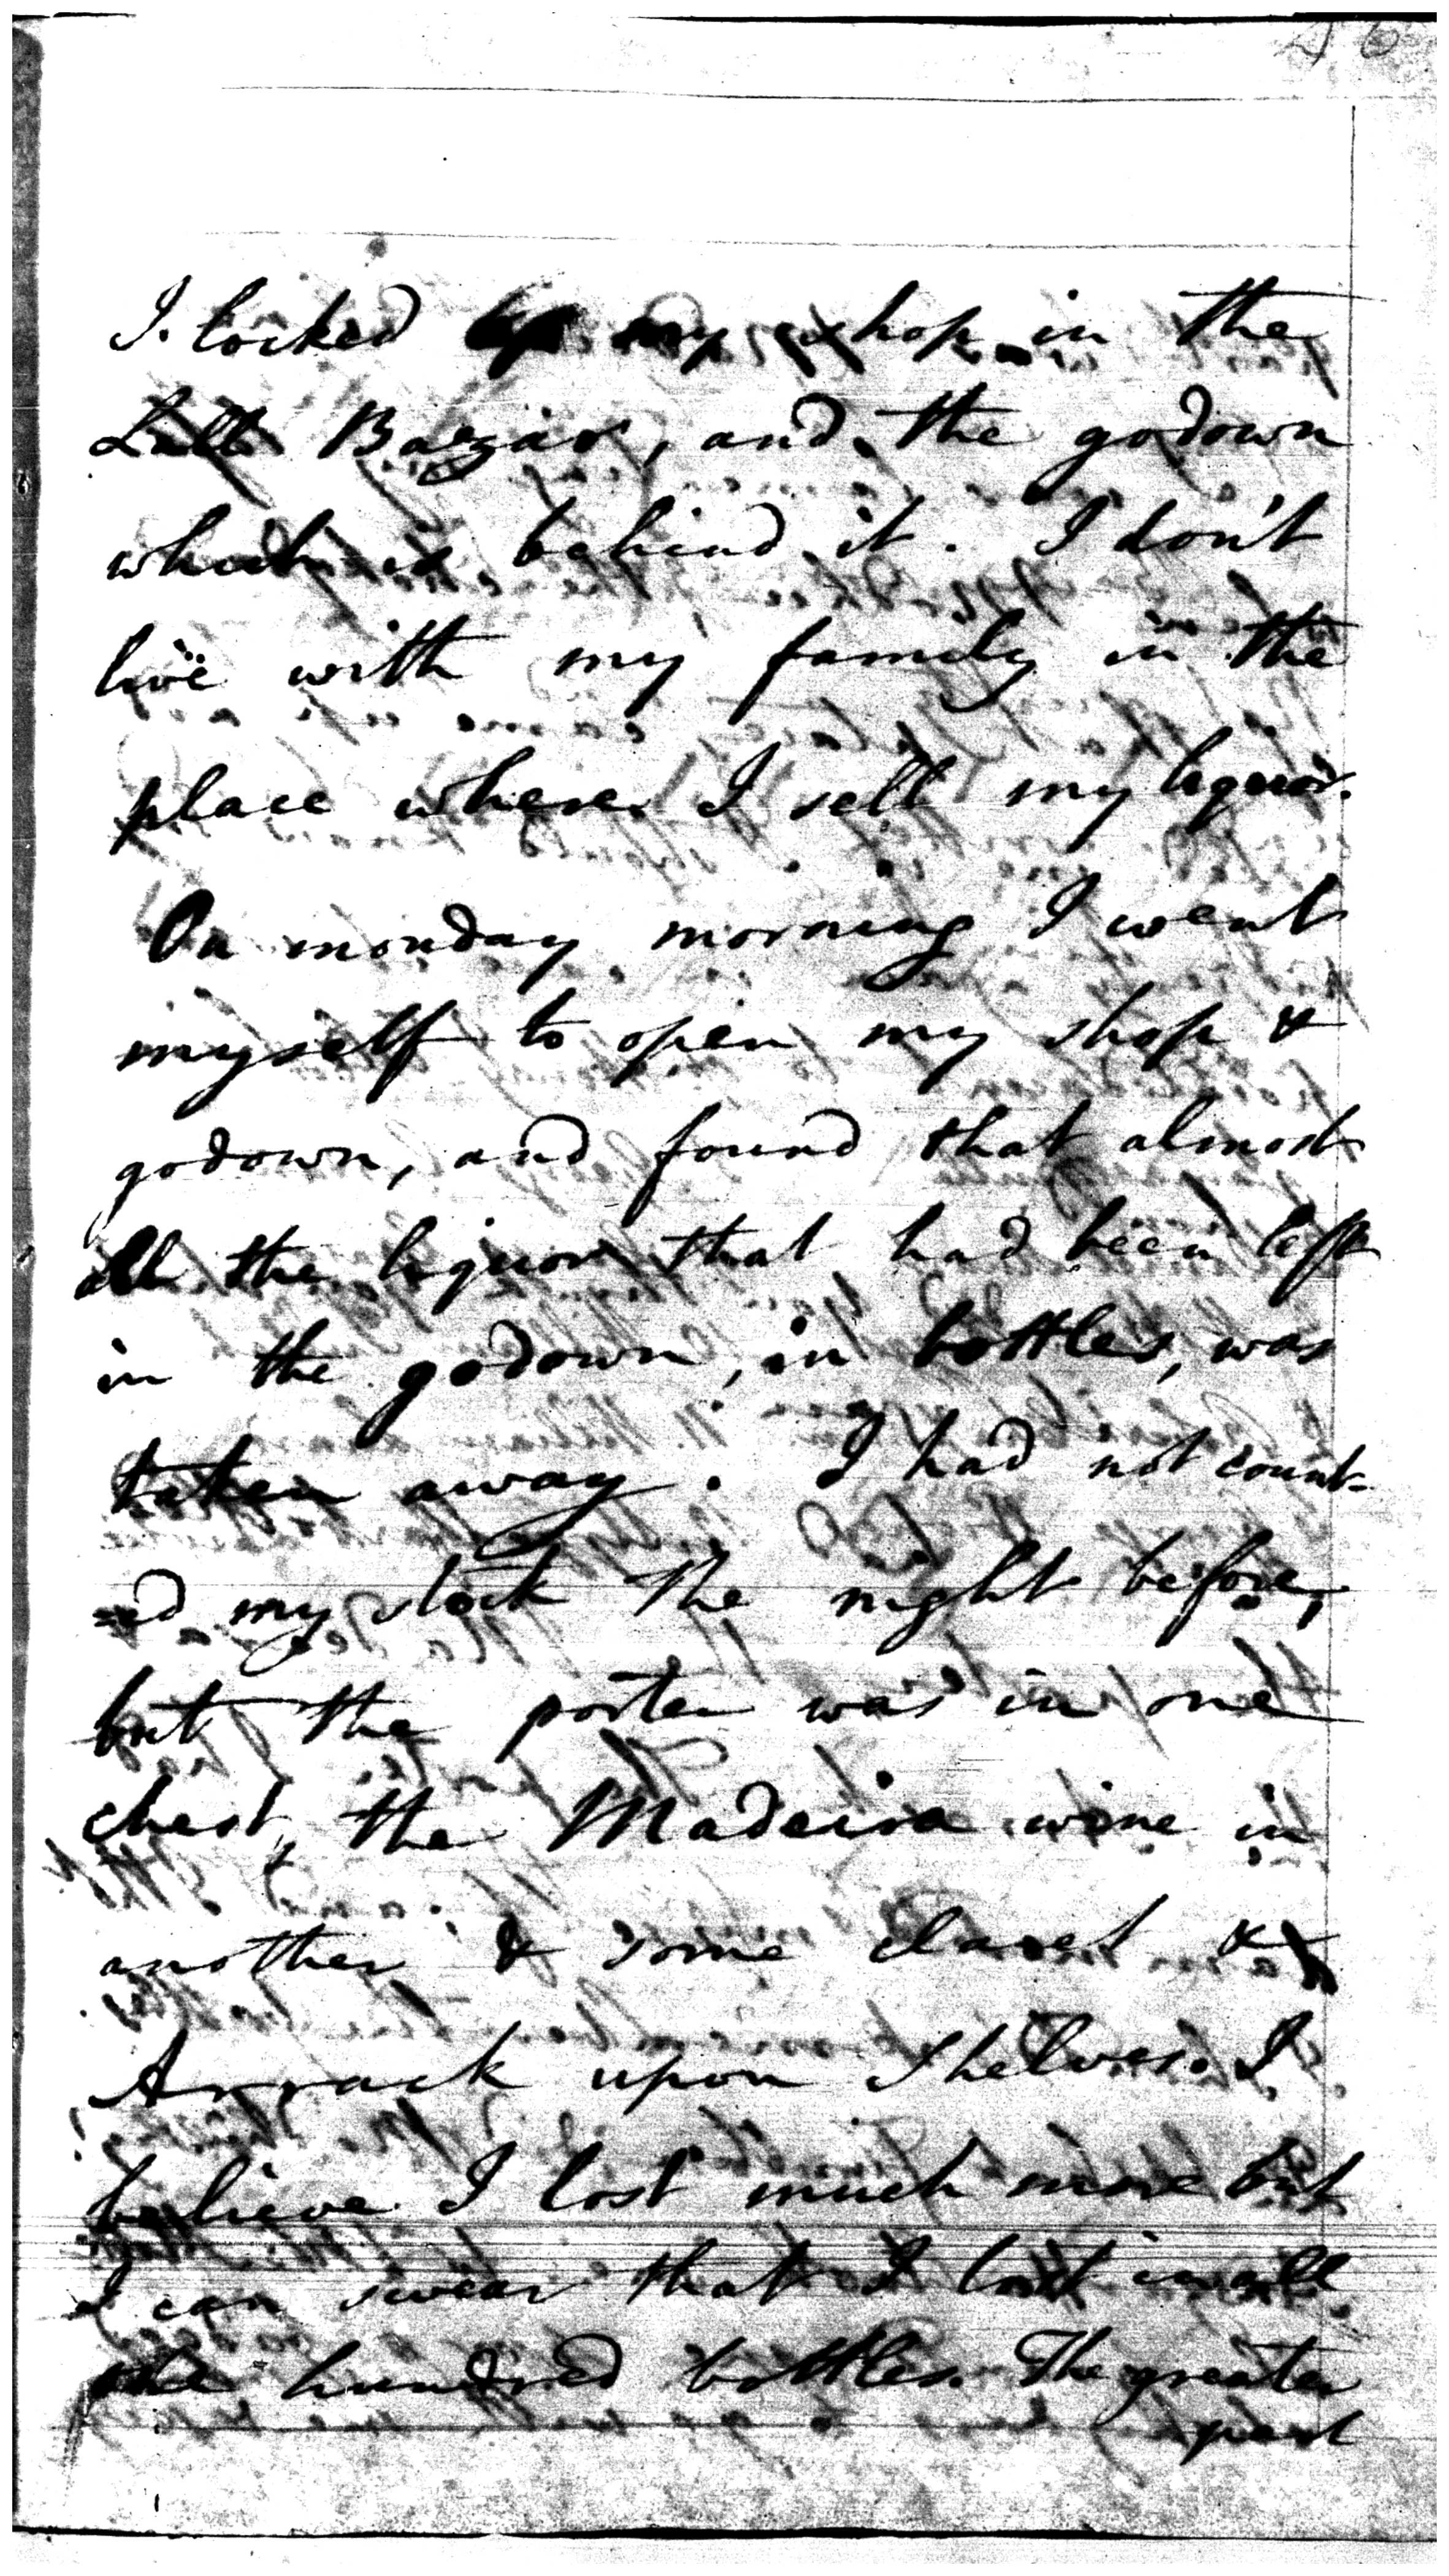 46
I locked up my shop in the
Lall Bazar, and the godown
which is behind it. I don't
live with my family in the
place where I sell my liquor.
On monday morning I went
myself to open my shop &
godown, and found that almost
all the liquor that had been left
in the godown, in bottles, was
taken away. I had not count-
=ed my stock the night before,
but the porter was in one
chest, the Madeira wine in
another & some claret &
Arrack upon Shelves. I
believe I lost much more but
I can swear that I lost in all
one hundred bottles. The greater
part